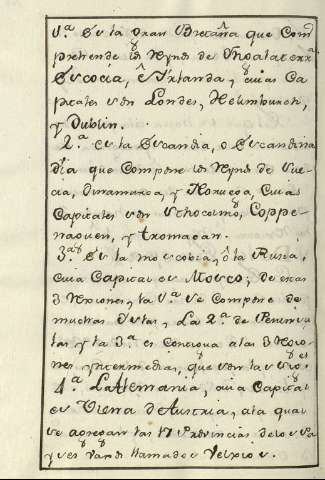 1.ª Es la Gran Bretaña que Com
prehende los Rynos de Yngalaterra
Escocia, é Yrlanda, y cuias Ca
pitales son Londes, Heimburch,
y Dublin.
2.ª es la Escandia, o Escandina
bia que Compone los Rynos de Sue
cia, Dinamarca, y Noruega, Cuias
Capitales son Stocolmo, Coppe
naguen, y
3.ª Es la moscobia, ó la Rusia,
Cuia Capital es Mosco; de estas
3 Rexiones, la 1.ª se Compone de
muchas Yslas, La 2.ª de Peninsu
las y la 3.ª es Contigua a las 3 Rexio
nes yntermedias, que son las
4.ª La Alemania, cuia Capital
es Viena d'Austria, a la qual
se agregan las 17 Provincias de los Pa
yses Vaxos llamados